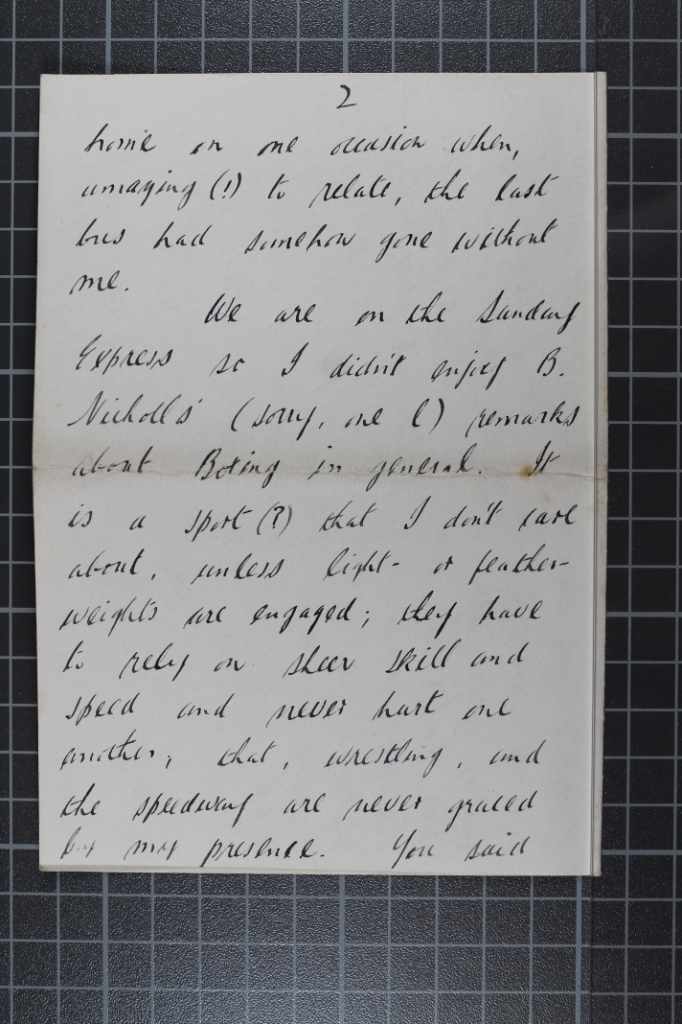 2
home on one occasion when,
amazing (!) to relate, the last
bus had somehow gone without
me.
We are on the Sunday
Express so I didn't enjoy B.
Nicholls' (sorry, one l) remarks
about Boxing in general. It
is a sport (?) that I don't care
about, unless light- or feather-
weights are engaged; they have
to rely on sheer skill and
speed and never hurt one
another; that, wrestling, and
the speedway are never graced
by my presence. You said